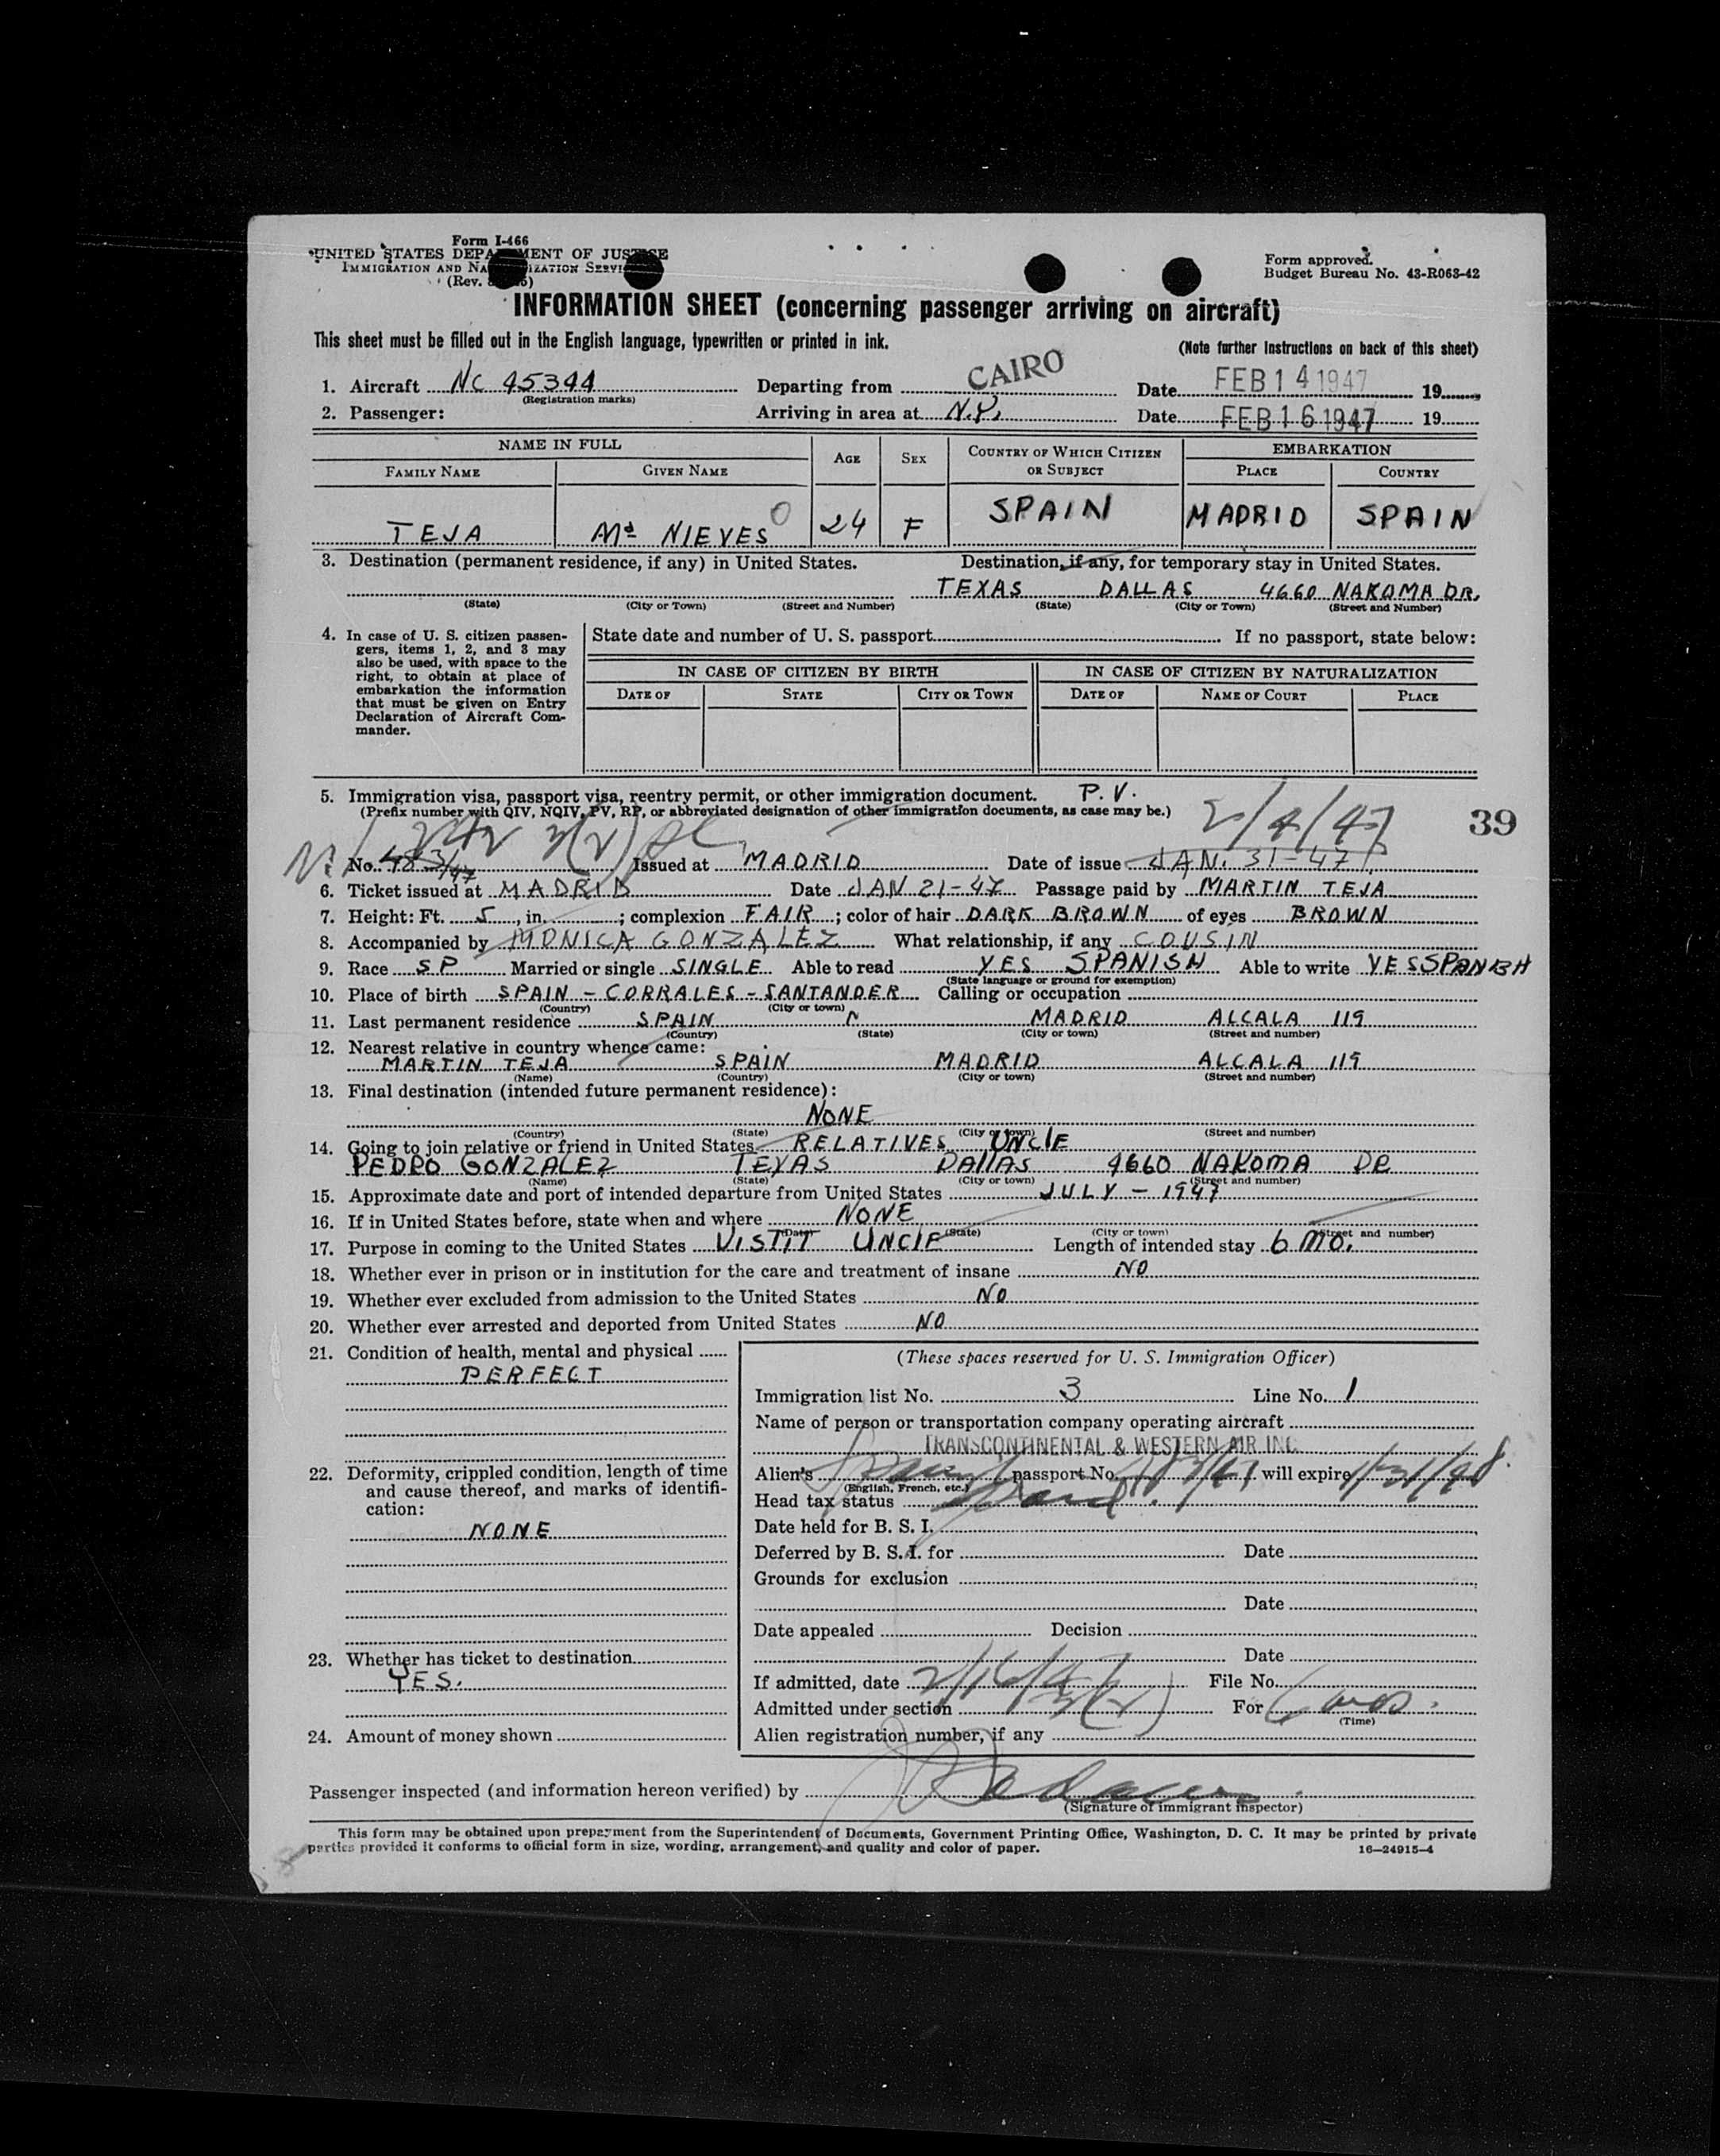 Form I-466
UNITED STATES DEPARTMENT OF JUSTICE
IMMIGRATION AND NATURALIZATION SERVICE
(Rev.
Form approved.
Budget Bureau No. 43-R063-42
INFORMATION SHEET (concerning passenger arriving on aircraft)
This sheet must be filled out in the English language, typewritten or printed in ink.
(Note further instructions on back of this sheet)
1. Aircraft NC 45344 Departing from CAIRO Date FEB 14 1947 19
(Registration marks)
2. Passenger: Arriving in area at N.Y. Date FEB 16 1947 19
NAME IN FULL AGE SEX COUNTRY OF WHICH CITIZEN OR SUBJECT EMBARKATION
FAMILY NAME GIVEN NAME PLACE COUNTRY
TEJA Mª NIEVES 0 24 F SPAIN MADRID SPAIN
3. Destination (permanent residence, if any) in United States. Destination, if any, for temporary stay in United States.
TEXAS DALLAS 4660 NAKOMA DR.
(State) (City or Town) (Street and Number) (State) (City or Town) (Street and Number)
4. In case of U. S. citizen passen-
gers, items 1, 2, and 3 may
also be used, with space to the
right, to obtain at place of
embarkation the information
that must be given on Entry
Declaration of Aircraft Com-
mander.
State date and number of U. S. passport If no passport, state below:
IN CASE OF CITIZEN BY BIRTH IN CASE OF CITIZEN BY NATURALIZATION
DATE OF STATE CITY OR TOWN DATE OF NAME OF COURT PLACE
5. Immigration visa, passport visa, reentry permit, or other immigration document. P. V.
(Prefix number with QIV, NQIV, PV, RP, or abbreviated designation of other immigration documents, as case may be.)
2/4/47 39
3(2)
No. Issued at MADRID Date of issue JAN. 31-47
6. Ticket issued at MADRID Date JAN 21-47 Passage paid by MARTIN TEJA
7. Height: Ft. 5, in. ; complexion FAIR ; color of hair DARK BROWN of eyes BROWN
8. Accompanied by MONICA GONZALEZ What relationship, if any COUSIN
9. Race SP Married or single SINGLE Able to read YES SPANISH Able to write YES SPANISH
(State language or ground for exemption)
10. Place of birth SPAIN - CORRALES - SANTANDER Calling or occupation
(Country) (City or town)
11. Last permanent residence SPAIN MADRID ALCALA 119
(Country) (State) (City or town) (Street and number)
12. Nearest relative in country whence came:
MARTIN TEJA SPAIN MADRID ALCALA 119
(Name) (Country) (City or town) (Street and number)
13. Final destination (intended future permanent residence):
NONE
(Country) (State) (City or town) (Street and number)
14. Going to join relative or friend in United States RELATIVES UNCLE
PEDRO GONZALEZ TEXAS DALLAS 4660 NAKOMA DR
(Name) (State) (City or town) (Street and number)
15. Approximate date and port of intended departure from United States JULY - 1947
16. If in United States before, state when and where NONE
(Date) (State) (City or town) (Street and number)
17. Purpose in coming to the United States VISTIT UNCLE Length of intended stay 6 MO.
18. Whether ever in prison or in institution for the care and treatment of insane NO
19. Whether ever excluded from admission to the United States NO
20. Whether ever arrested and deported from United States NO
21. Condition of health, mental and physical
PERFECT
22. Deformity, crippled condition, length of time
and cause thereof, and marks of identifi-
cation:
NONE
23. Whether has ticket to destination
YES.
24. Amount of money shown
(These spaces reserved for U. S. Immigration Officer)
Immigration list No. 3 Line No. 1
Name of person or transportation company operating aircraft
TRANSCONTINENTAL & WESTERN AIR INC.
Alien's passport No. will expire 1/31/48.
(English, French, etc.)
Head tax status
Date held for B. S. I.
Deferred by B. S. I. for Date
Grounds for exclusion
Date
Date appealed Decision
Date
If admitted, date 2/16/47 File No.
Admitted under section 3(2) For 6 mos.
(Time)
Alien registration number, if any
Passenger inspected (and information hereon verified) by
(Signature of immigrant inspector)
This form may be obtained upon prepayment from the Superintendent of Documents, Government Printing Office, Washington, D. C. It may be printed by private
parties provided it conforms to official form in size, wording, arrangement, and quality and color of paper. 16—24915-4